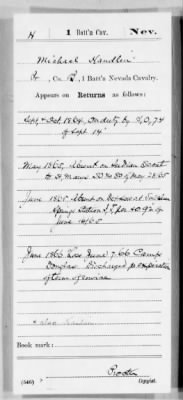 H 1 Batt'n Cav. Nev.
Michael Handlin
, Co. B, 1 Batt'n Nevada Cavalry.
Appears on
Returns as follows:
Sept & Oct 1864, On duty by S.O. 74
of Sept 14
May 1865, Absent on Indian Scout
to St. Marie SO No 50 of May 28 65
June 1865 Absent on
Springs Station S.O. No 9 of
June 18/65
June 1866 Loss June 7, 66 Camp
Douglas Discharged pr expiration
of term of service
Book mark:
(546)
Copyist.